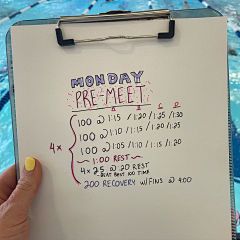 MONDAY
PRE-MEET
A B C D
100 @ 1:15 / 1:20 / 1:25 / 1:30
100 @ 1:10 / 1:15 / 1:20 / 1:25
4x
100 @ 1:05 / 1:10 / 1:15 / 1:20
~ 1:00 REST ~
4 x 25 @ :20 REST
BEAT BEST 100 TIME
200 RECOVERY W/FINS @ 4:00